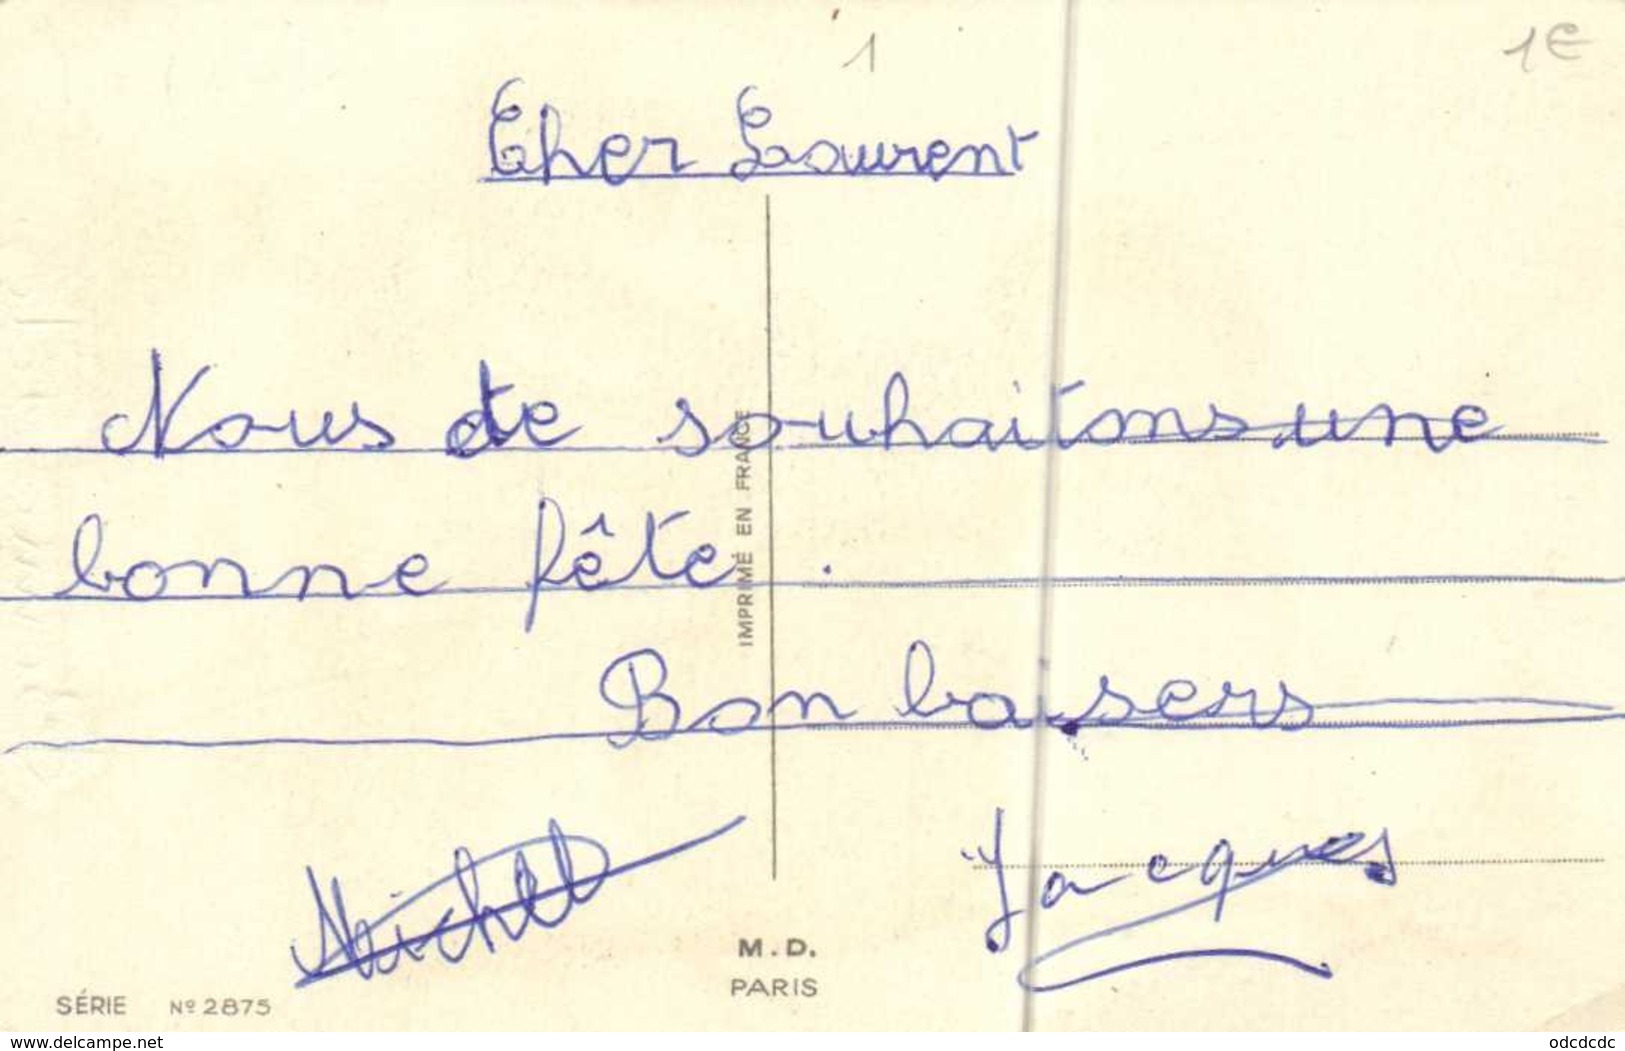 1
1€
Cher Laurent
Nous te souhaitons une
bonne fête.
Bon baisers
Michel
Jacques
IMPRIMÉ EN FRANCE
M.D.
PARIS
SÉRIE Nº 2875
www.delcampe.net
odcdcdc